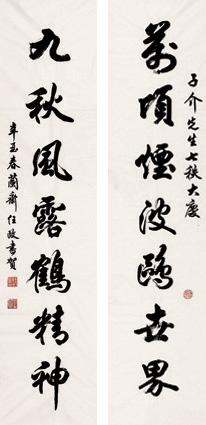 子介先生七秩大庆
萬頃煙波鷗世界
九秋風露鶴精神
辛玉春蘭齋任政書賀